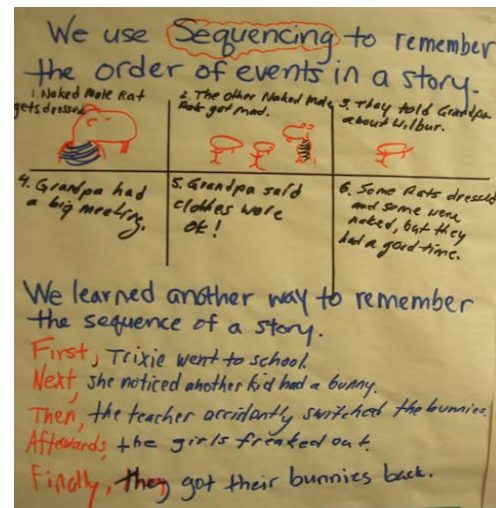 We use Sequencing to remember
the order of events in a story.
1. Naked Mole Rat
gets dressed
2. The other Naked Mole
Rats got mad.
3. They told Grandpa
about Wilbur.
4. Grandpa had
a big meeting.
5. Grandpa said
clothes were
ok!
6. Some Rats dressed
and some were
naked, but they
had a good time.
We learned another way to remember
the sequence of a story.
First, Trixie went to school.
Next, she noticed another kid had a bunny.
Then, the teacher accidently switched the bunnies.
Afterwards, the girls freaked out.
Finally, they got their bunnies back.